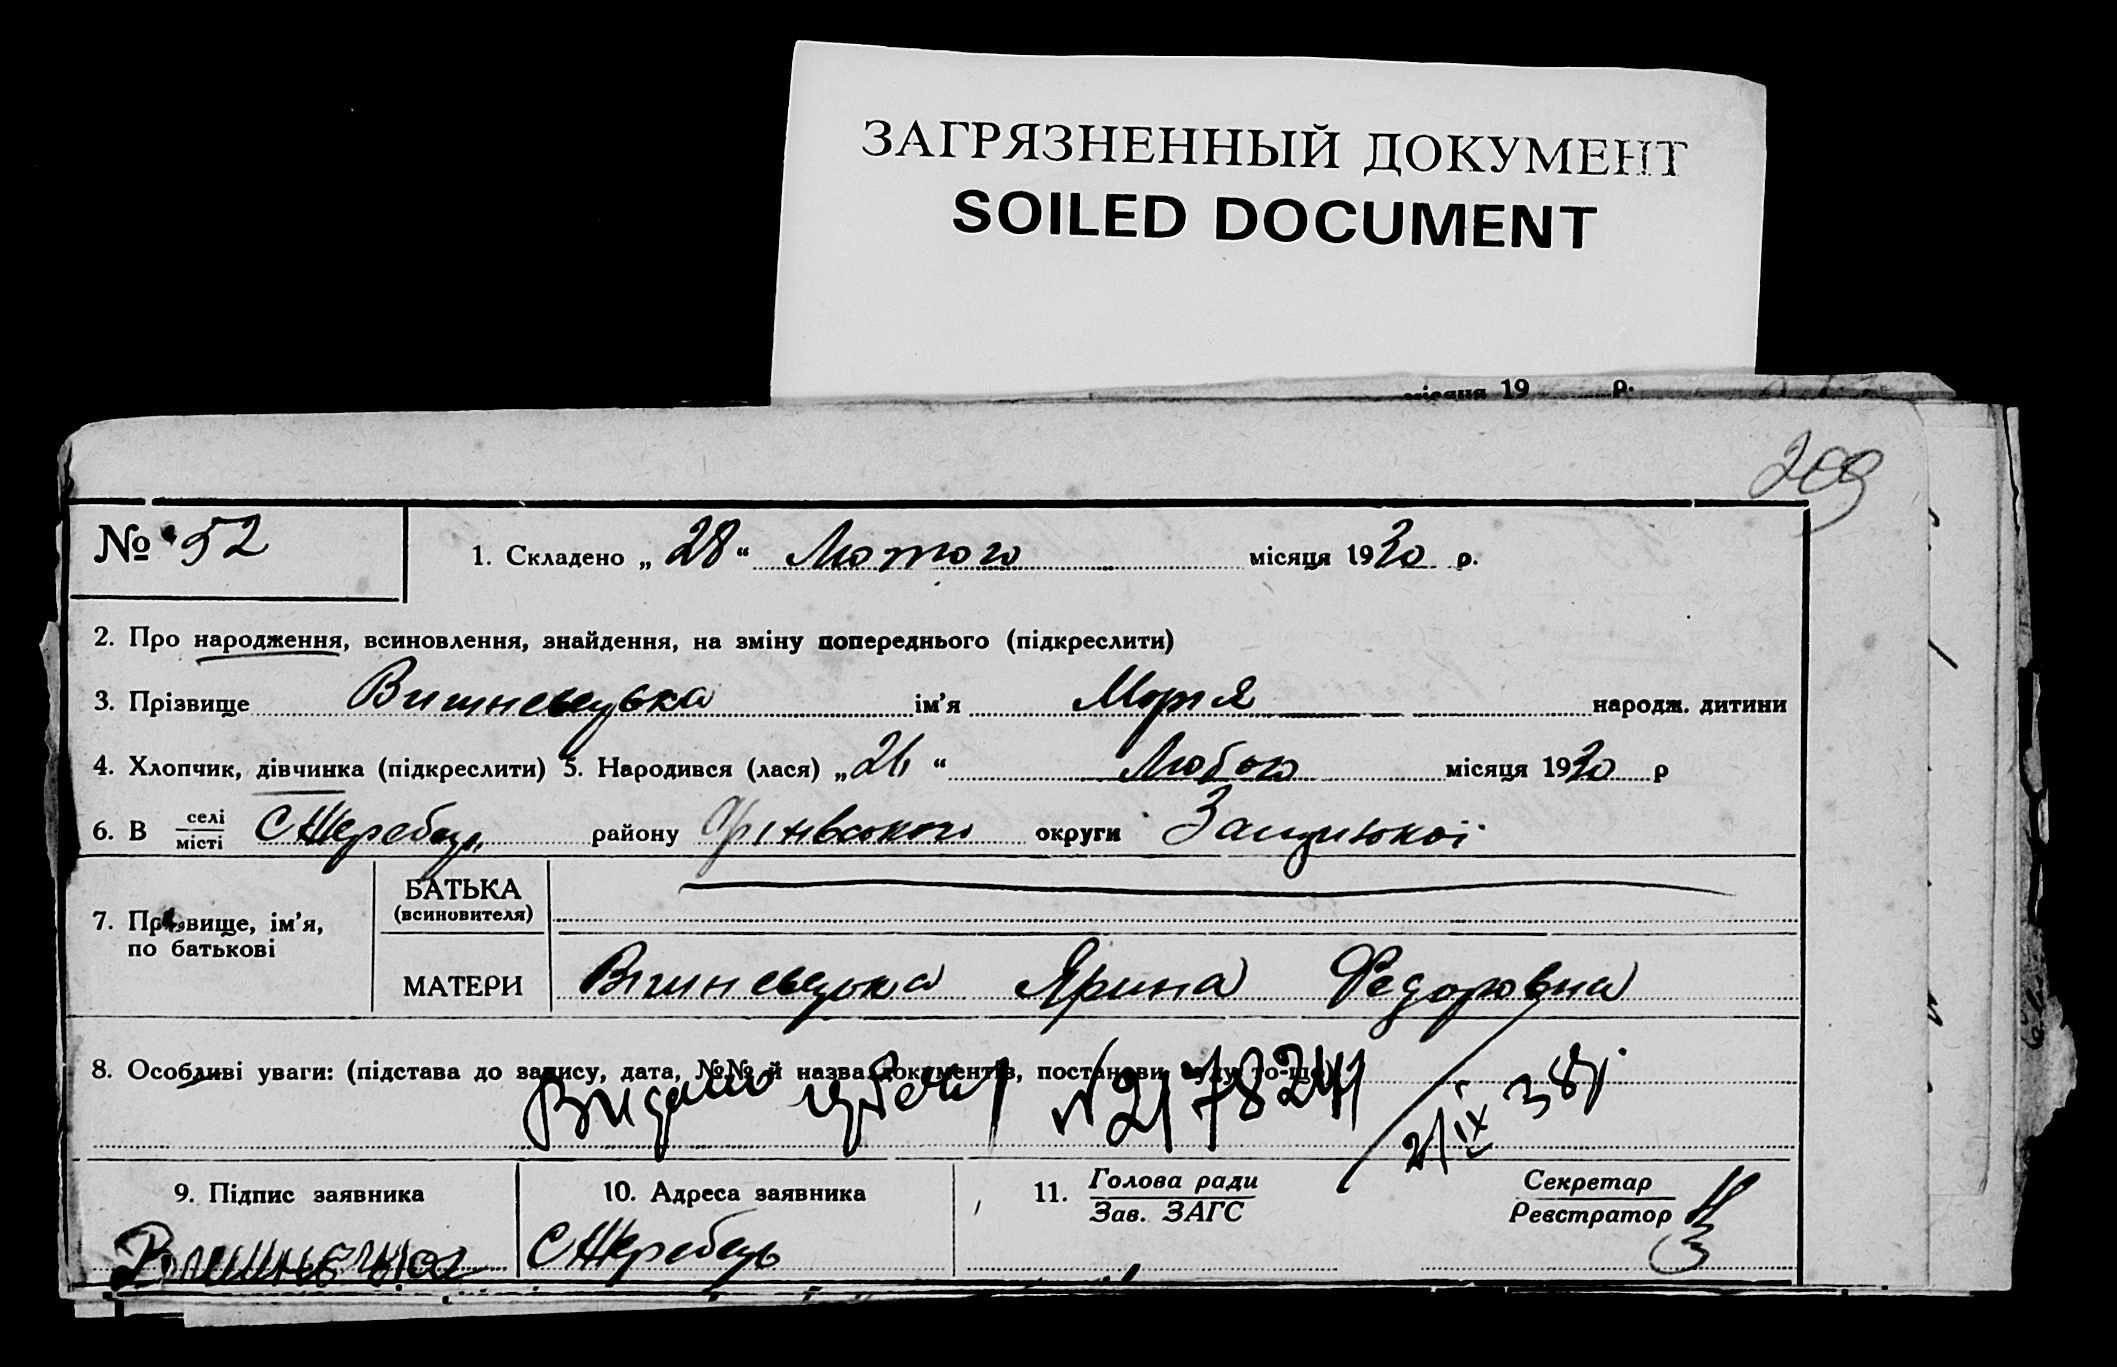 ЗАГРЯЗНЕННЫЙ ДОКУМЕНТ
SOILED DOCUMENT
місяця 19 р.
209
№ 52
1. Складено „ 28 “ Лютого місяця 1930 р.
2. Про народження, всиновлення, знайдення, на зміну попереднього (підкреслити)
3. Прізвище Вишневецька ім’я Марія народж. дитини
4. Хлопчик, дівчинка (підкреслити) 5. Народився (лася) „ “ місяця 1930 р
6. В селі місті С Жеребець району округи
7. Прізвище, ім’я, по батькові
БАТЬКА
(всиновителя)
МАТЕРИ Вишневецька Ярина Федоровна
8. Особливі уваги: (підстава до запису, дата, №№ й назва документів, постанови суду то-що)
Видано
21/IX 38
9. Підпис заявника
10. Адреса заявника
11. Голова ради
Зав. ЗАГС
Секретар
Реєстратор
С Жеребець